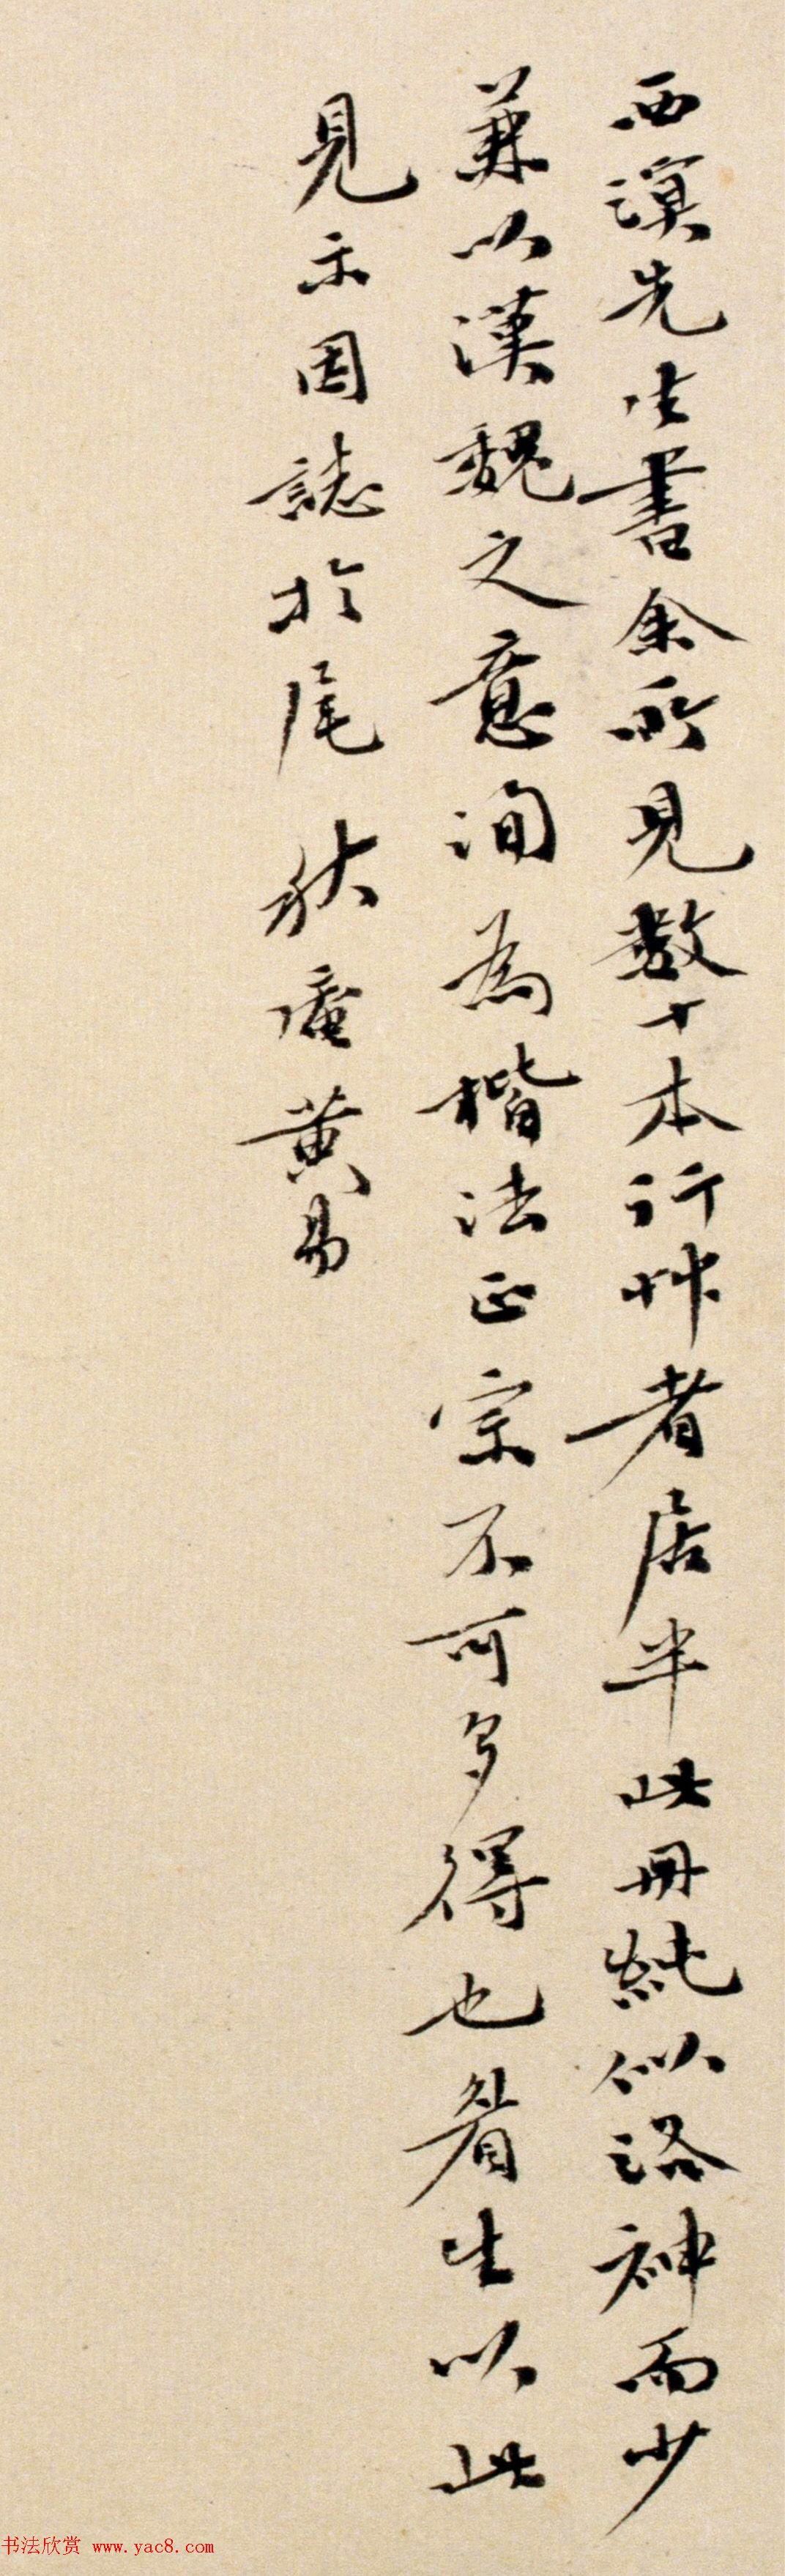 西溟先生書余所見數十本行艸者居半此冊純似洛神而少
兼以漢魏之意洵為楷法正宗不可多得也眘生以此
見示因誌於尾 秋盦黃易
书法欣赏 www.yac8.com